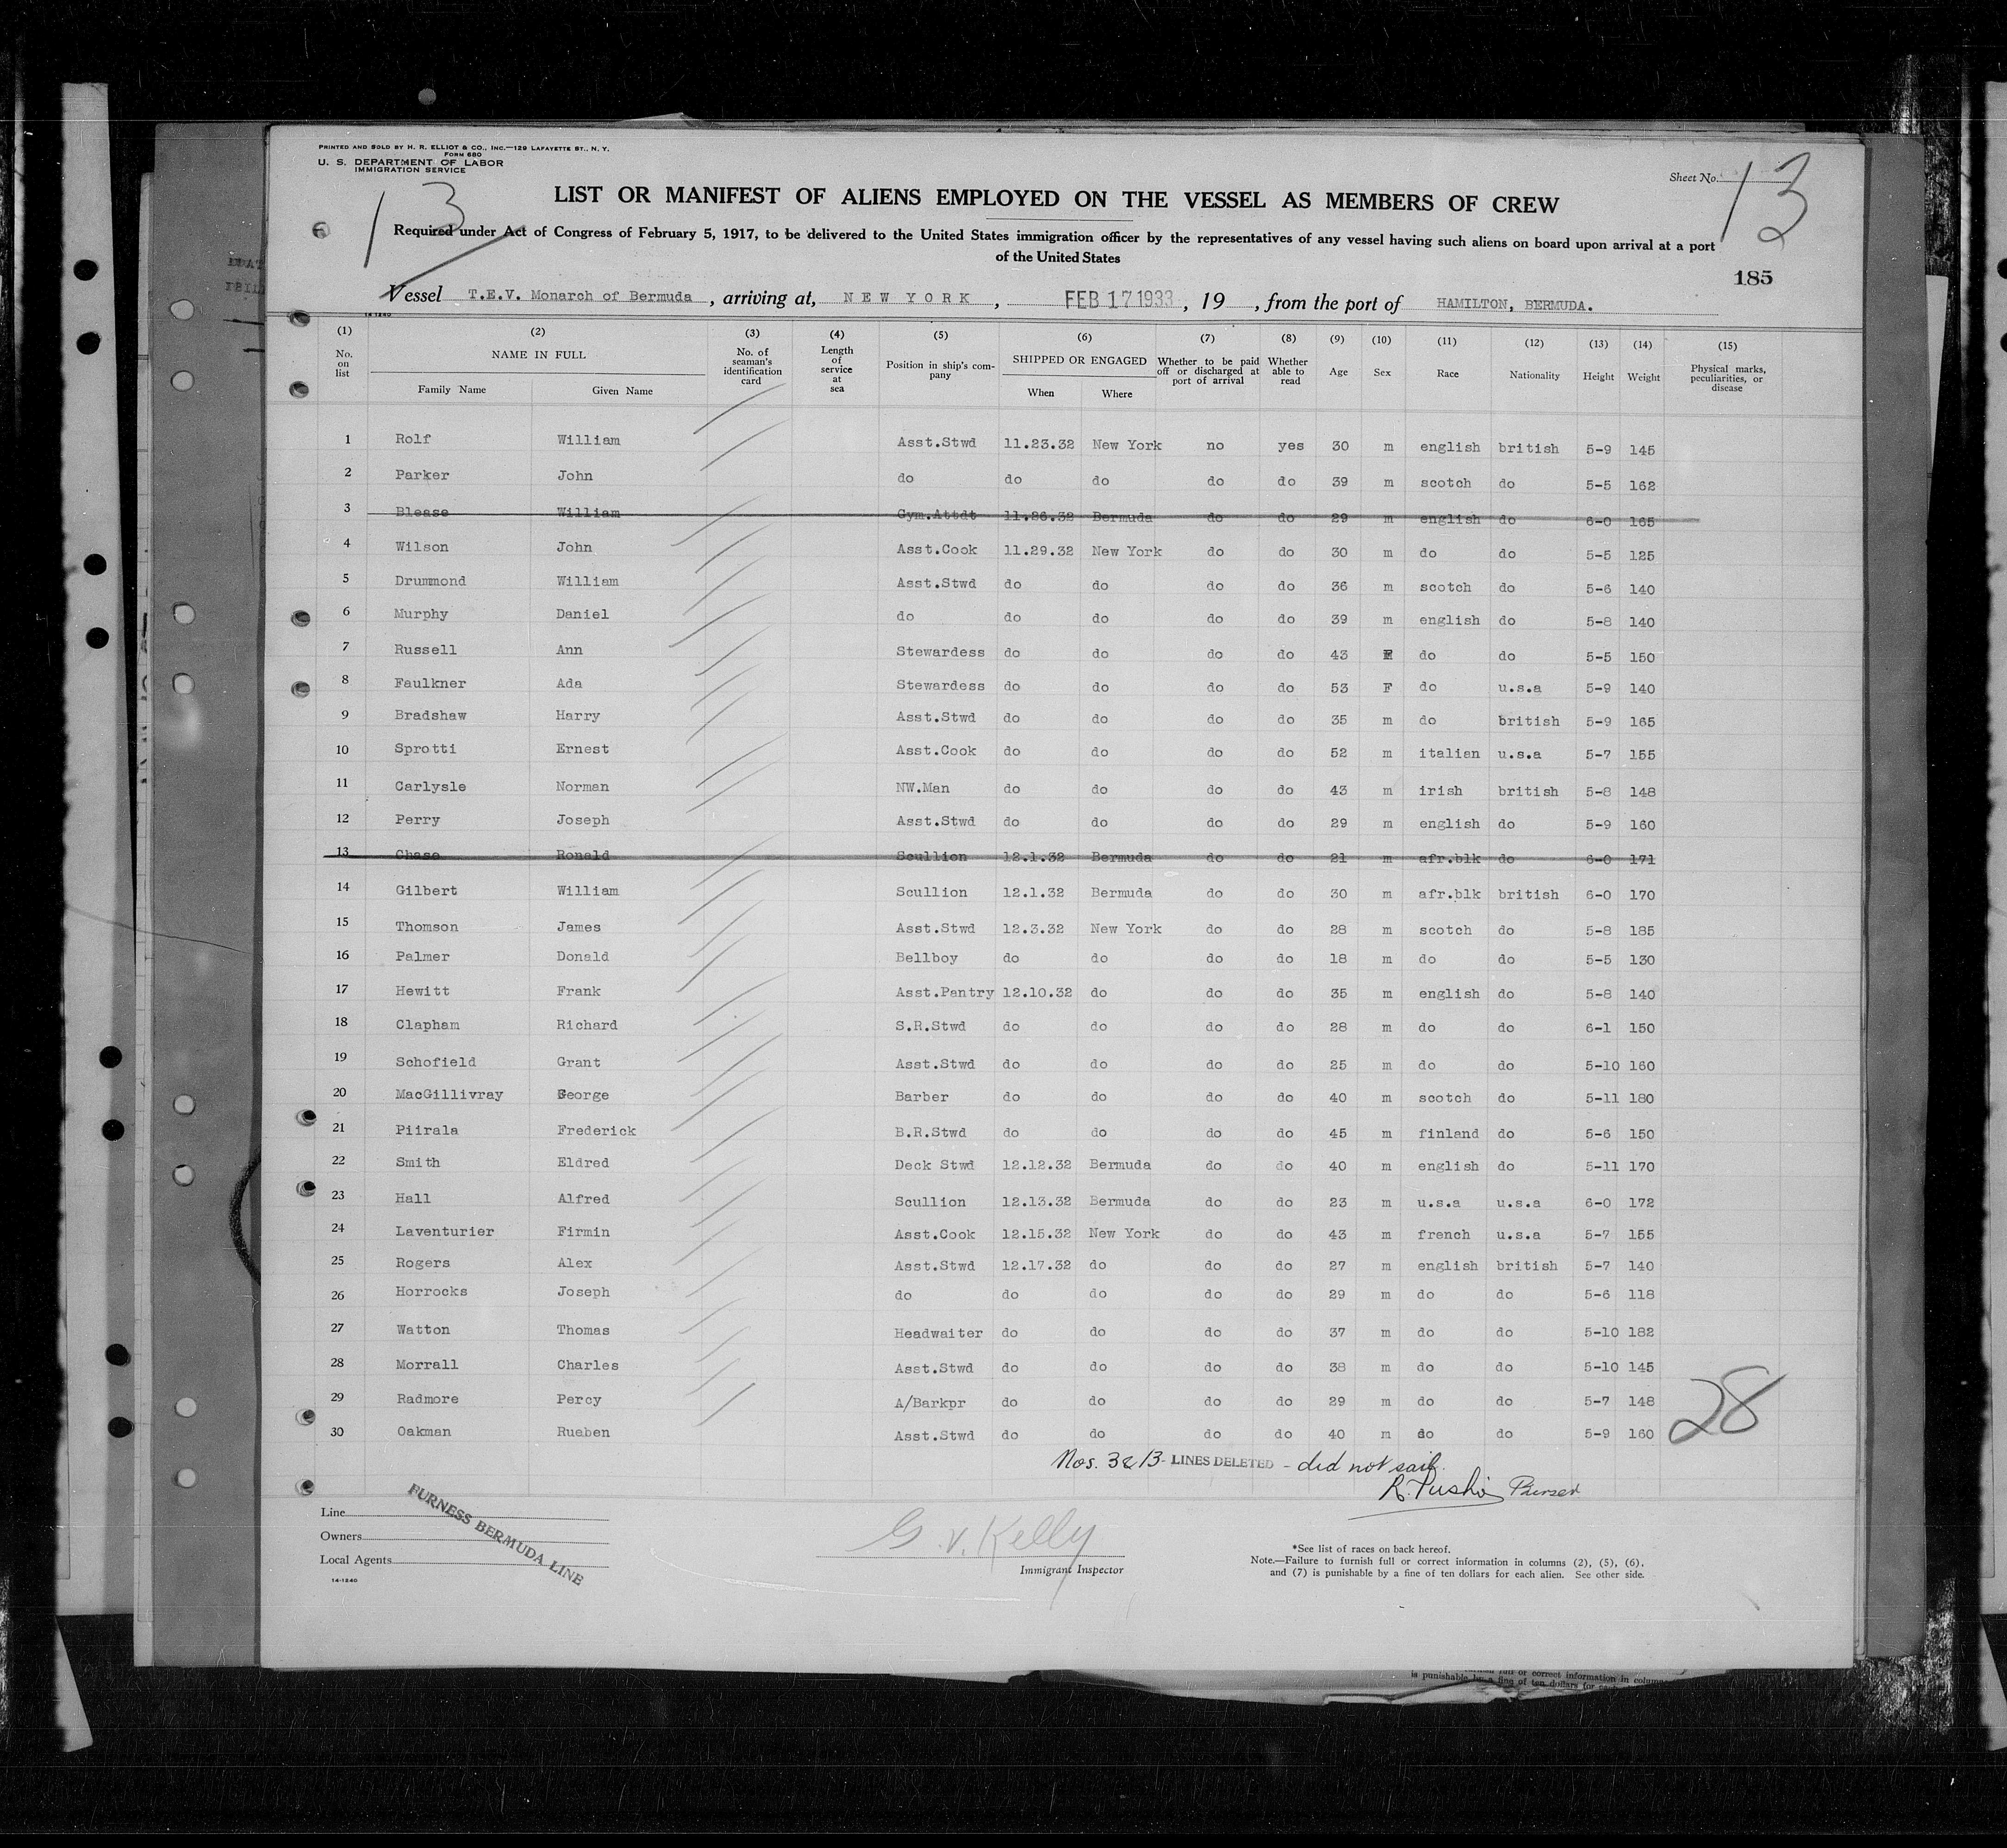 PRINTED AND SOLD BY H. R. ELLIOT & CO., INC.—129 LAFAYETTE ST., N. Y.
FORM 680
U. S. DEPARTMENT OF LABOR
IMMIGRATION SERVICE
13
Sheet No. 13
LIST OR MANIFEST OF ALIENS EMPLOYED ON THE VESSEL AS MEMBERS OF CREW
Required under Act of Congress of February 5, 1917, to be delivered to the United States immigration officer by the representatives of any vessel having such aliens on board upon arrival at a port
of the United States
185
Vessel T.E.V. Monarch of Bermuda, arriving at, NEW YORK, FEB 17 1933, 19 , from the port of HAMILTON, BERMUDA.
14-1240
(1) (2) (3) (4) (5) (6) (7) (8) (9) (10) (11) (12) (13) (14) (15)
No. on list NAME IN FULL Family Name Given Name No. of seaman's identification card Length of service at sea Position in ship's company SHIPPED OR ENGAGED When Where Whether to be paid off or discharged at port of arrival Whether able to read Age Sex Race Nationality Height Weight Physical marks, peculiarities, or disease
1 Rolf William Asst.Stwd 11.23.32 New York no yes 30 m english british 5-9 145
2 Parker John do do do do do 39 m scotch do 5-5 162
3 Blease William Gym.Attdt 11.26.32 Bermuda do do 29 m english do 6-0 165
4 Wilson John Asst.Cook 11.29.32 New York do do 30 m do do 5-5 125
5 Drummond William Asst.Stwd do do do do 36 m scotch do 5-6 140
6 Murphy Daniel do do do do do 39 m english do 5-8 140
7 Russell Ann Stewardess do do do do 43 F do do 5-5 150
8 Faulkner Ada Stewardess do do do do 53 F do u.s.a 5-9 140
9 Bradshaw Harry Asst.Stwd do do do do 35 m do british 5-9 165
10 Sprotti Ernest Asst.Cook do do do do 52 m italian u.s.a 5-7 155
11 Carlysle Norman NW.Man do do do do 43 m irish british 5-8 148
12 Perry Joseph Asst.Stwd do do do do 29 m english do 5-9 160
13 Chase Ronald Scullion 12.1.32 Bermuda do do 21 m afr.blk do 6-0 171
14 Gilbert William Scullion 12.1.32 Bermuda do do 30 m afr.blk british 6-0 170
15 Thomson James Asst.Stwd 12.3.32 New York do do 28 m scotch do 5-8 185
16 Palmer Donald Bellboy do do do do 18 m do do 5-5 130
17 Hewitt Frank Asst.Pantry 12.10.32 do do do 35 m english do 5-8 140
18 Clapham Richard S.R.Stwd do do do do 28 m do do 6-1 150
19 Schofield Grant Asst.Stwd do do do do 25 m do do 5-10 160
20 MacGillivray George Barber do do do do 40 m scotch do 5-11 180
21 Piirala Frederick B.R.Stwd do do do do 45 m finland do 5-6 150
22 Smith Eldred Deck Stwd 12.12.32 Bermuda do do 40 m english do 5-11 170
23 Hall Alfred Scullion 12.13.32 Bermuda do do 23 m u.s.a u.s.a 6-0 172
24 Laventurier Firmin Asst.Cook 12.15.32 New York do do 43 m french u.s.a 5-7 155
25 Rogers Alex Asst.Stwd 12.17.32 do do do 27 m english british 5-7 140
26 Horrocks Joseph do do do do do 29 m do do 5-6 118
27 Watton Thomas Headwaiter do do do do 37 m do do 5-10 182
28 Morrall Charles Asst.Stwd do do do do 38 m do do 5-10 145
29 Radmore Percy A/Barkpr do do do do 29 m do do 5-7 148
30 Oakman Rueben Asst.Stwd do do do do 40 m do do 5-9 160
28
Nos. 3 & 13 - LINES DELETED - did not sail.
R. Purser
Line
Owners
Local Agents
FURNESS BERMUDA LINE
14-1240
G. V. Kelly
Immigrant Inspector
*See list of races on back hereof.
Note.—Failure to furnish full or correct information in columns (2), (5), (6),
and (7) is punishable by a fine of ten dollars for each alien. See other side.
or correct information in colum
is punishable by a fine of ten dollars for